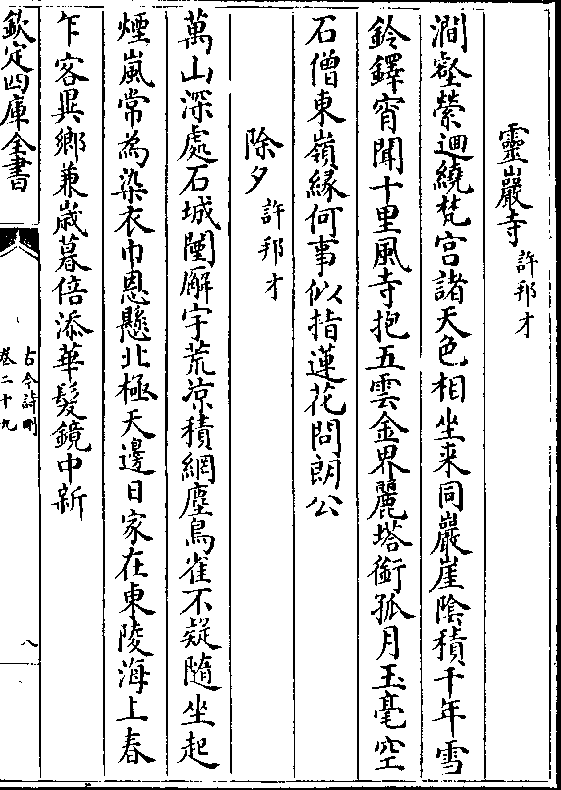 靈巖寺 許邦才
澗壑縈迴繞梵宮諸天色相坐来同巖崖陰積千年雪
鈴鐸宵聞十里風寺抱五雲金界麗塔銜孤月玉毫空
石僧東嶺縁何事似指蓮花問朗公
除夕 許邦才
萬山深處石城闉廨宇荒凉積網塵鳥雀不疑隨坐起
煙嵐常為染衣巾恩懸北極天邊日家在東陵海上春
乍客異鄉兼歲暮倍添華髮鏡中新
欽定四庫全書
古今詩刪
卷二十九
八